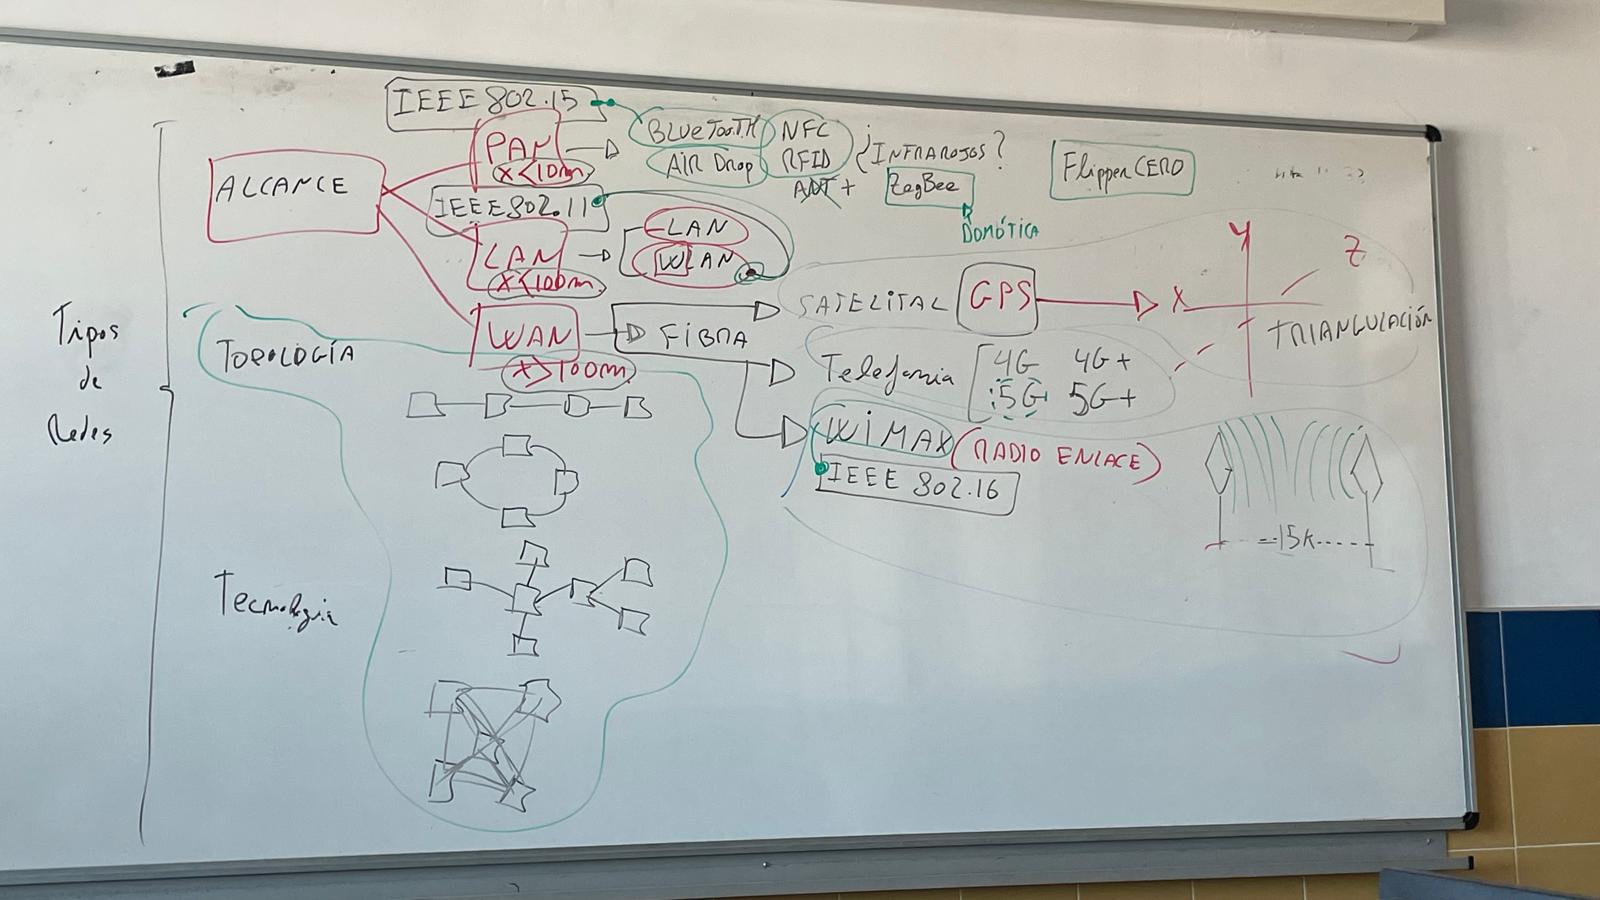 Tipos
de
Redes
ALCANCE
IEEE 802.15
PAN
x<10m
BLUETOOTH
AIR DROP
NFC
RFID
ANT +
¿INFRAROJOS?
ZegBee
DOMÓTICA
FlipperCERO
IEEE 802.11
LAN
x<100m
LAN
WLAN
WAN
x>100m
FIBRA
SATELITAL
GPS
X
Y
Z
TRIANGULACIÓN
Telefonia
4G 4G+
5G 5G+
WiMAX (RADIO ENLACE)
IEEE 802.16
15K
TOPOLOGÍA
Tecnologia